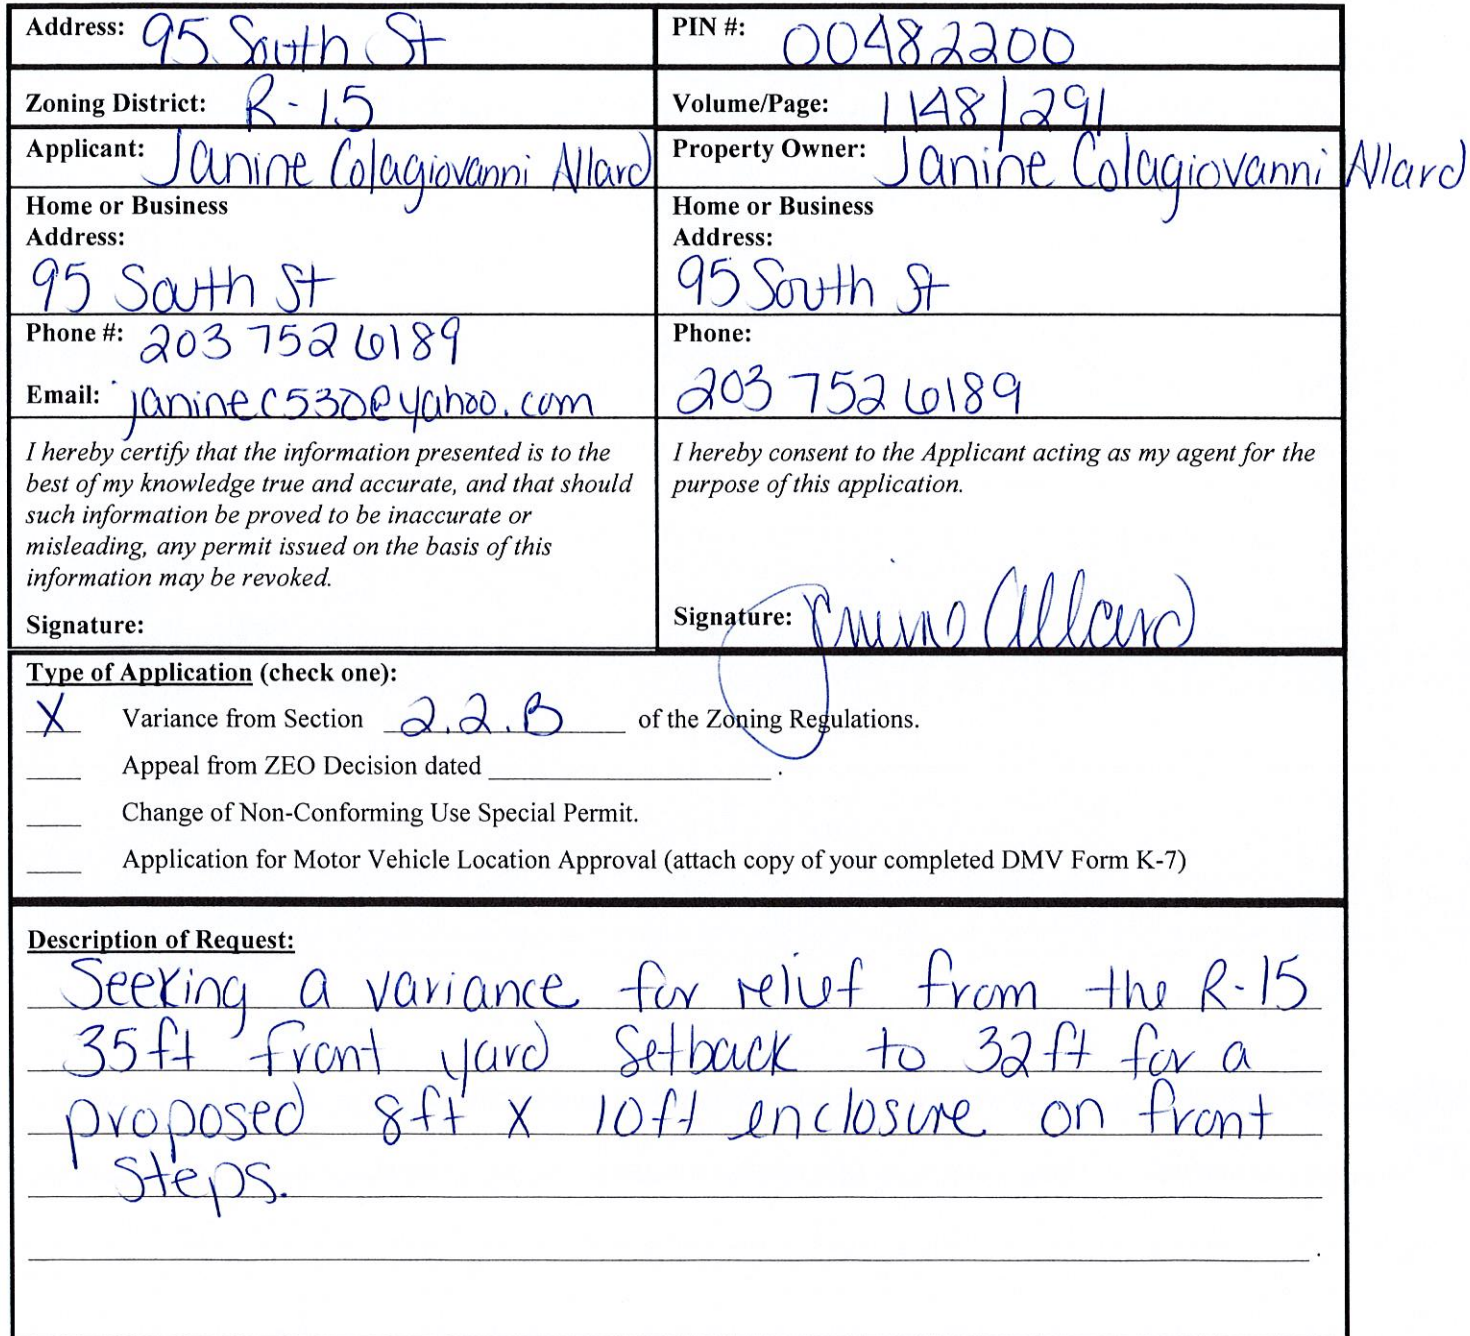 Address: 95 South St
PIN #: 00482200
Zoning District: R-15
Volume/Page: 1148/291
Applicant: Janine Colagiovanni Allard
Property Owner: Janine Colagiovanni Allard
Home or Business
Address:
95 South St
Home or Business
Address:
95 South St
Phone #: 203 752 6189
Email: janinec530@yahoo.com
Phone:
203 752 6189
I hereby certify that the information presented is to the
best of my knowledge true and accurate, and that should
such information be proved to be inaccurate or
misleading, any permit issued on the basis of this
information may be revoked.
Signature:
I hereby consent to the Applicant acting as my agent for the
purpose of this application.
Signature: Janine Allard
Type of Application (check one):
X Variance from Section 2.2.B of the Zoning Regulations.
Appeal from ZEO Decision dated .
Change of Non-Conforming Use Special Permit.
Application for Motor Vehicle Location Approval (attach copy of your completed DMV Form K-7)
Description of Request:
Seeking a variance for relief from the R-15
35ft front yard setback to 32ft for a
proposed 8ft x 10ft enclosure on front
steps.
.